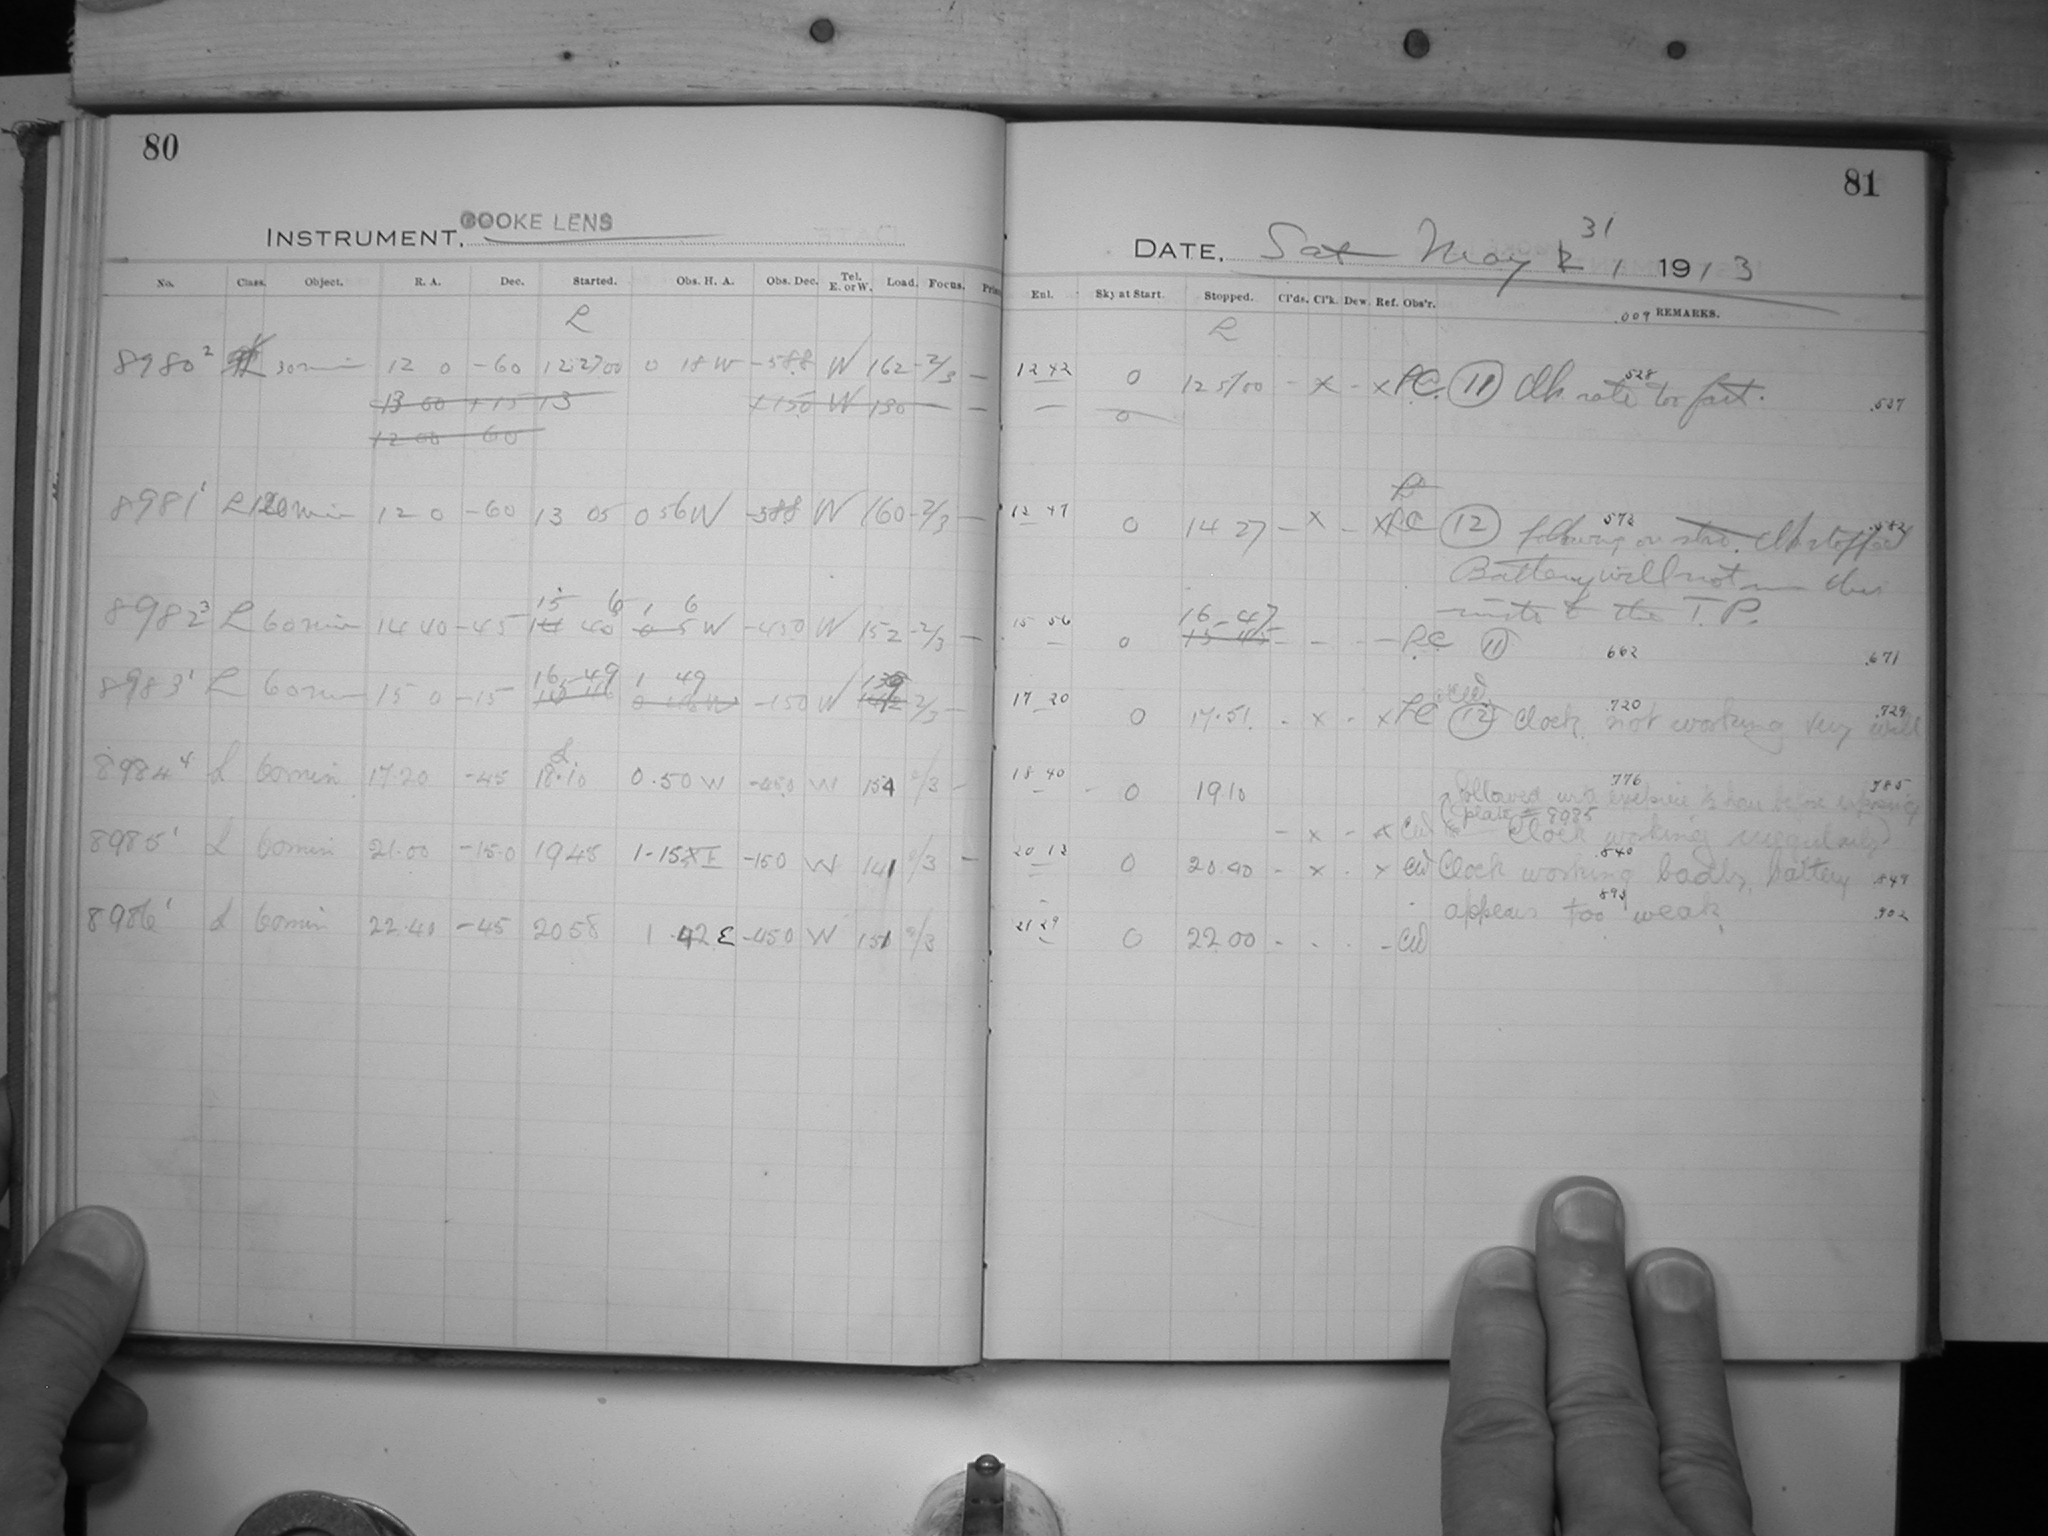 80
INSTRUMENT, COOKE LENS
No. Class. Object. R. A. Dec. Started. Obs. H. A. Obs. Dec. Tel. E. or W. Load. Focus.
L
8980 2 30 min 12 0 -60 12.27 00 0 18 W -588 W 162 -2/3 -
13 00 +15 13 +150 W 130 -
12 00 60
8981 1 L 120 min 12 0 -60 13 05 0 56 W -588 W 160 -2/3 -
15 6 1 6
8982 3 L 60 min 14 40 -45 14 40 0 5 W -450 W 152 -2/3 -
16-49 1 49 139
8983 1 L 60 min 15 0 -15 -150 W -2/3 -
L
8984 4 L 60 min 17.20 -45 18.10 0.50 W -450 W 154 2/3 -
8985 1 L 60 min 21.00 -15.0 1945 1-15 E -150 W 141 2/3 -
8986 1 L 60 min 22.40 -45 2058 1 42 E -450 W 151 2/3
81
31
DATE, Sat May 1, 1913
Enl. Sky at Start. Stopped. Cl'ds. Cl'k. Dew. Ref. Obs'r. .009 REMARKS.
L
12 42 0 12 57 00 - x - x P.C. (11) Clk rate too fast. .528 .537
- 0
12 47 0 14 27 - x - x P.C. (12) following on Clk stopped .572
Battery will not run this
minute to the T. P.
16-47
15 56 0 15 45 - - - - P.C. (11) 662 .671
17 20 0 17.51 - x - x P.C (12) Clock not working very well .720 .729
18 40 0 19 10 followed with eyepiece ½ hour before exposing .776 .785
plate # 8985
- x - x CW Clock working irregularly
20 12 0 20.40 - x - x CW Clock working badly, battery .840 .849
appears too weak .893 .902
21 29 0 22 00 - - - - CW